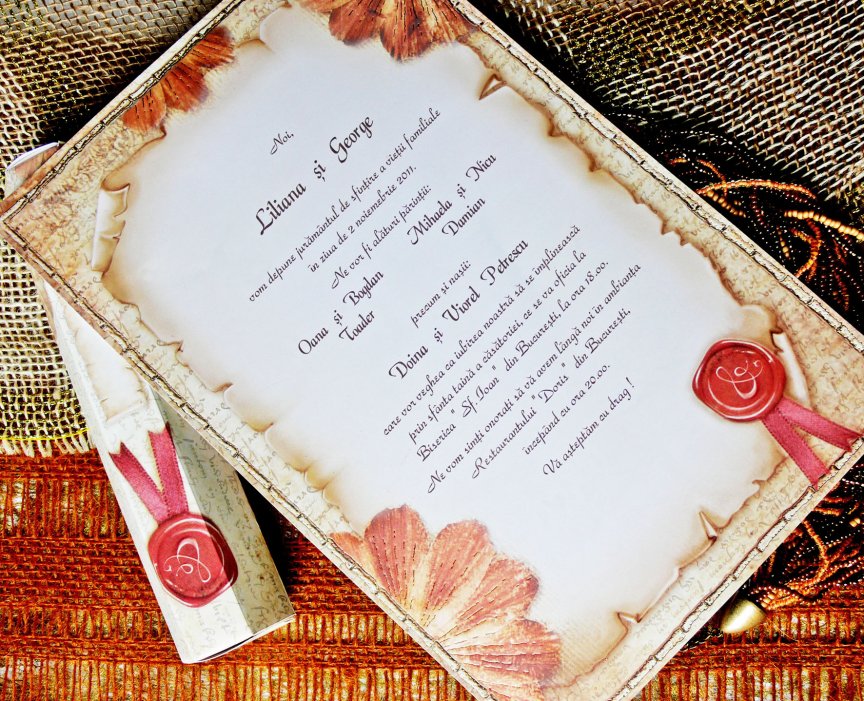 Noi,
Liliana și George
vom depune jurământul de sfințire a vieții familiale
în ziua de 2 noiembrie 2011.
Ne vor fi alături părinții:
Oana și Bogdan Mihaela și Nicu
Toader Damian
precum si nașii:
Doina și Viorel Petrescu
care vor veghea ca iubirea noastră să se împlinească
prin sfânta taină a căsătoriei, ce se va oficia la
Biserica "Sf.Ioan" din București, la ora 18.00.
Ne vom simți onorați să vă avem lângă noi în ambianța
Restaurantului "Doris" din București,
începând cu ora 20.00.
Vă așteptăm cu drag !